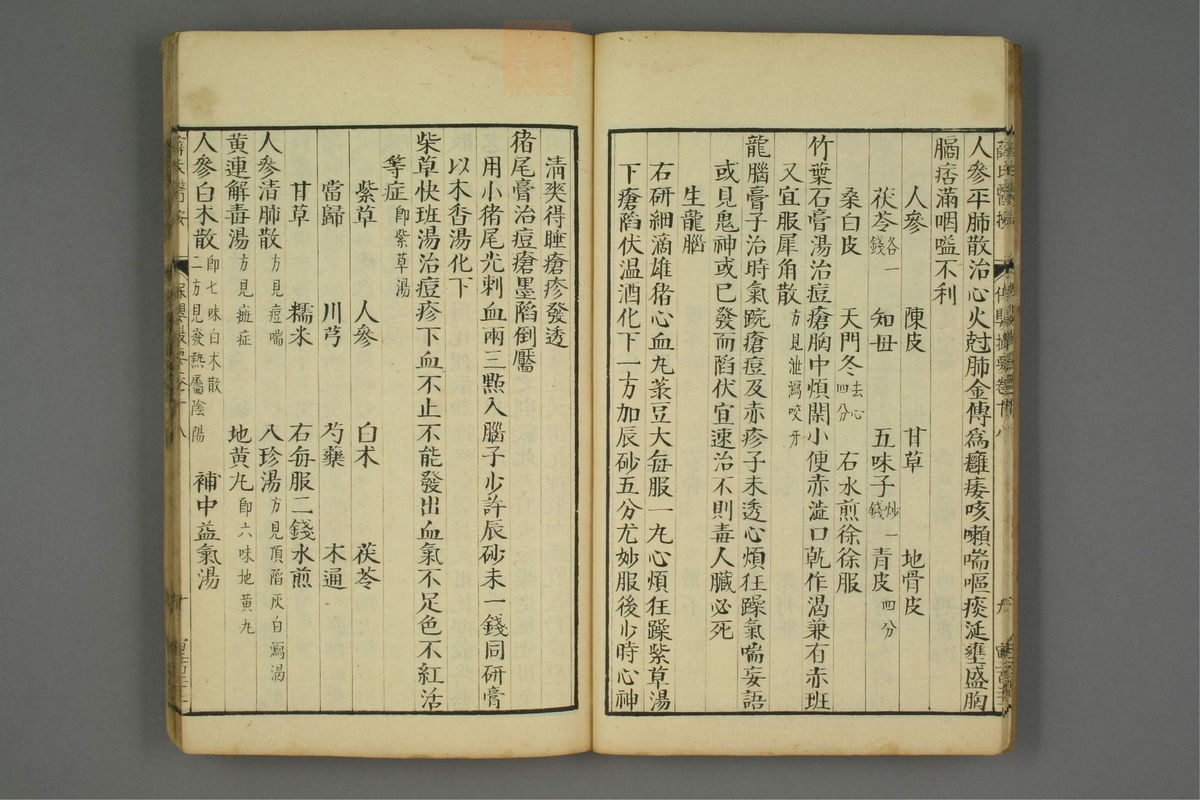 人參平肺散治心火尅肺金傳為癰痿咳嗽喘嘔痰涎壅盛胸
膈痞滿咽嗌不利
人參 陳皮 甘草 地骨皮
茯苓各一錢 知母 五味子炒一錢 青皮四分
桑白皮 天門冬去心四分 石水煎徐徐服
竹葉石膏湯治痘瘡胸中煩悶小便赤澁口乾作渴兼有赤斑
又宜服犀角散方見泄瀉咬牙
龍腦膏子治時氣豌瘡痘及赤疹子未透心煩狂躁氣喘妄語
或見鬼神或已發而陷伏宜速治不則毒人臟必死
生龍腦
右研細滴雄猪心血丸菉豆大每服一丸心煩狂躁紫草湯
下瘡陷伏温酒化下一方加辰砂五分尤妙服後少時心神
清爽得睡瘡疹發透
猪尾膏治痘瘡墨陷倒靨
用小猪尾尖刺血兩三點入腦子少許辰砂末一錢同研膏
以木香湯化下
柴草快班湯治痘疹下血不止不能發出血氣不足色不紅活
等症卽紫草湯
紫草 人參 白术 茯苓
當歸 川芎 芍藥 木通
甘草 糯米 右每服二錢水煎
人參清肺散方見痘喘 八珍湯方見頂陷灰白瀉渴
黄連解毒湯方見癍症 地黄丸卽六味地黄丸
人參白术散卽七味白术散二方見發熱屬陰陽 補中益氣湯